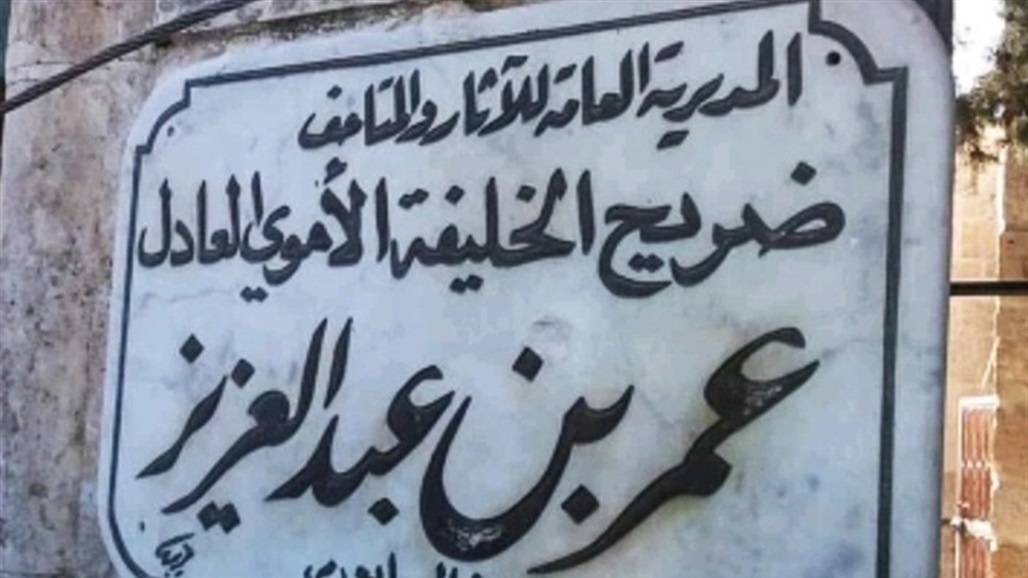 المديرية العامة للآثار والمتاحف
ضريح الخليفة الأموي العادل
عمر بن عبد العزيز